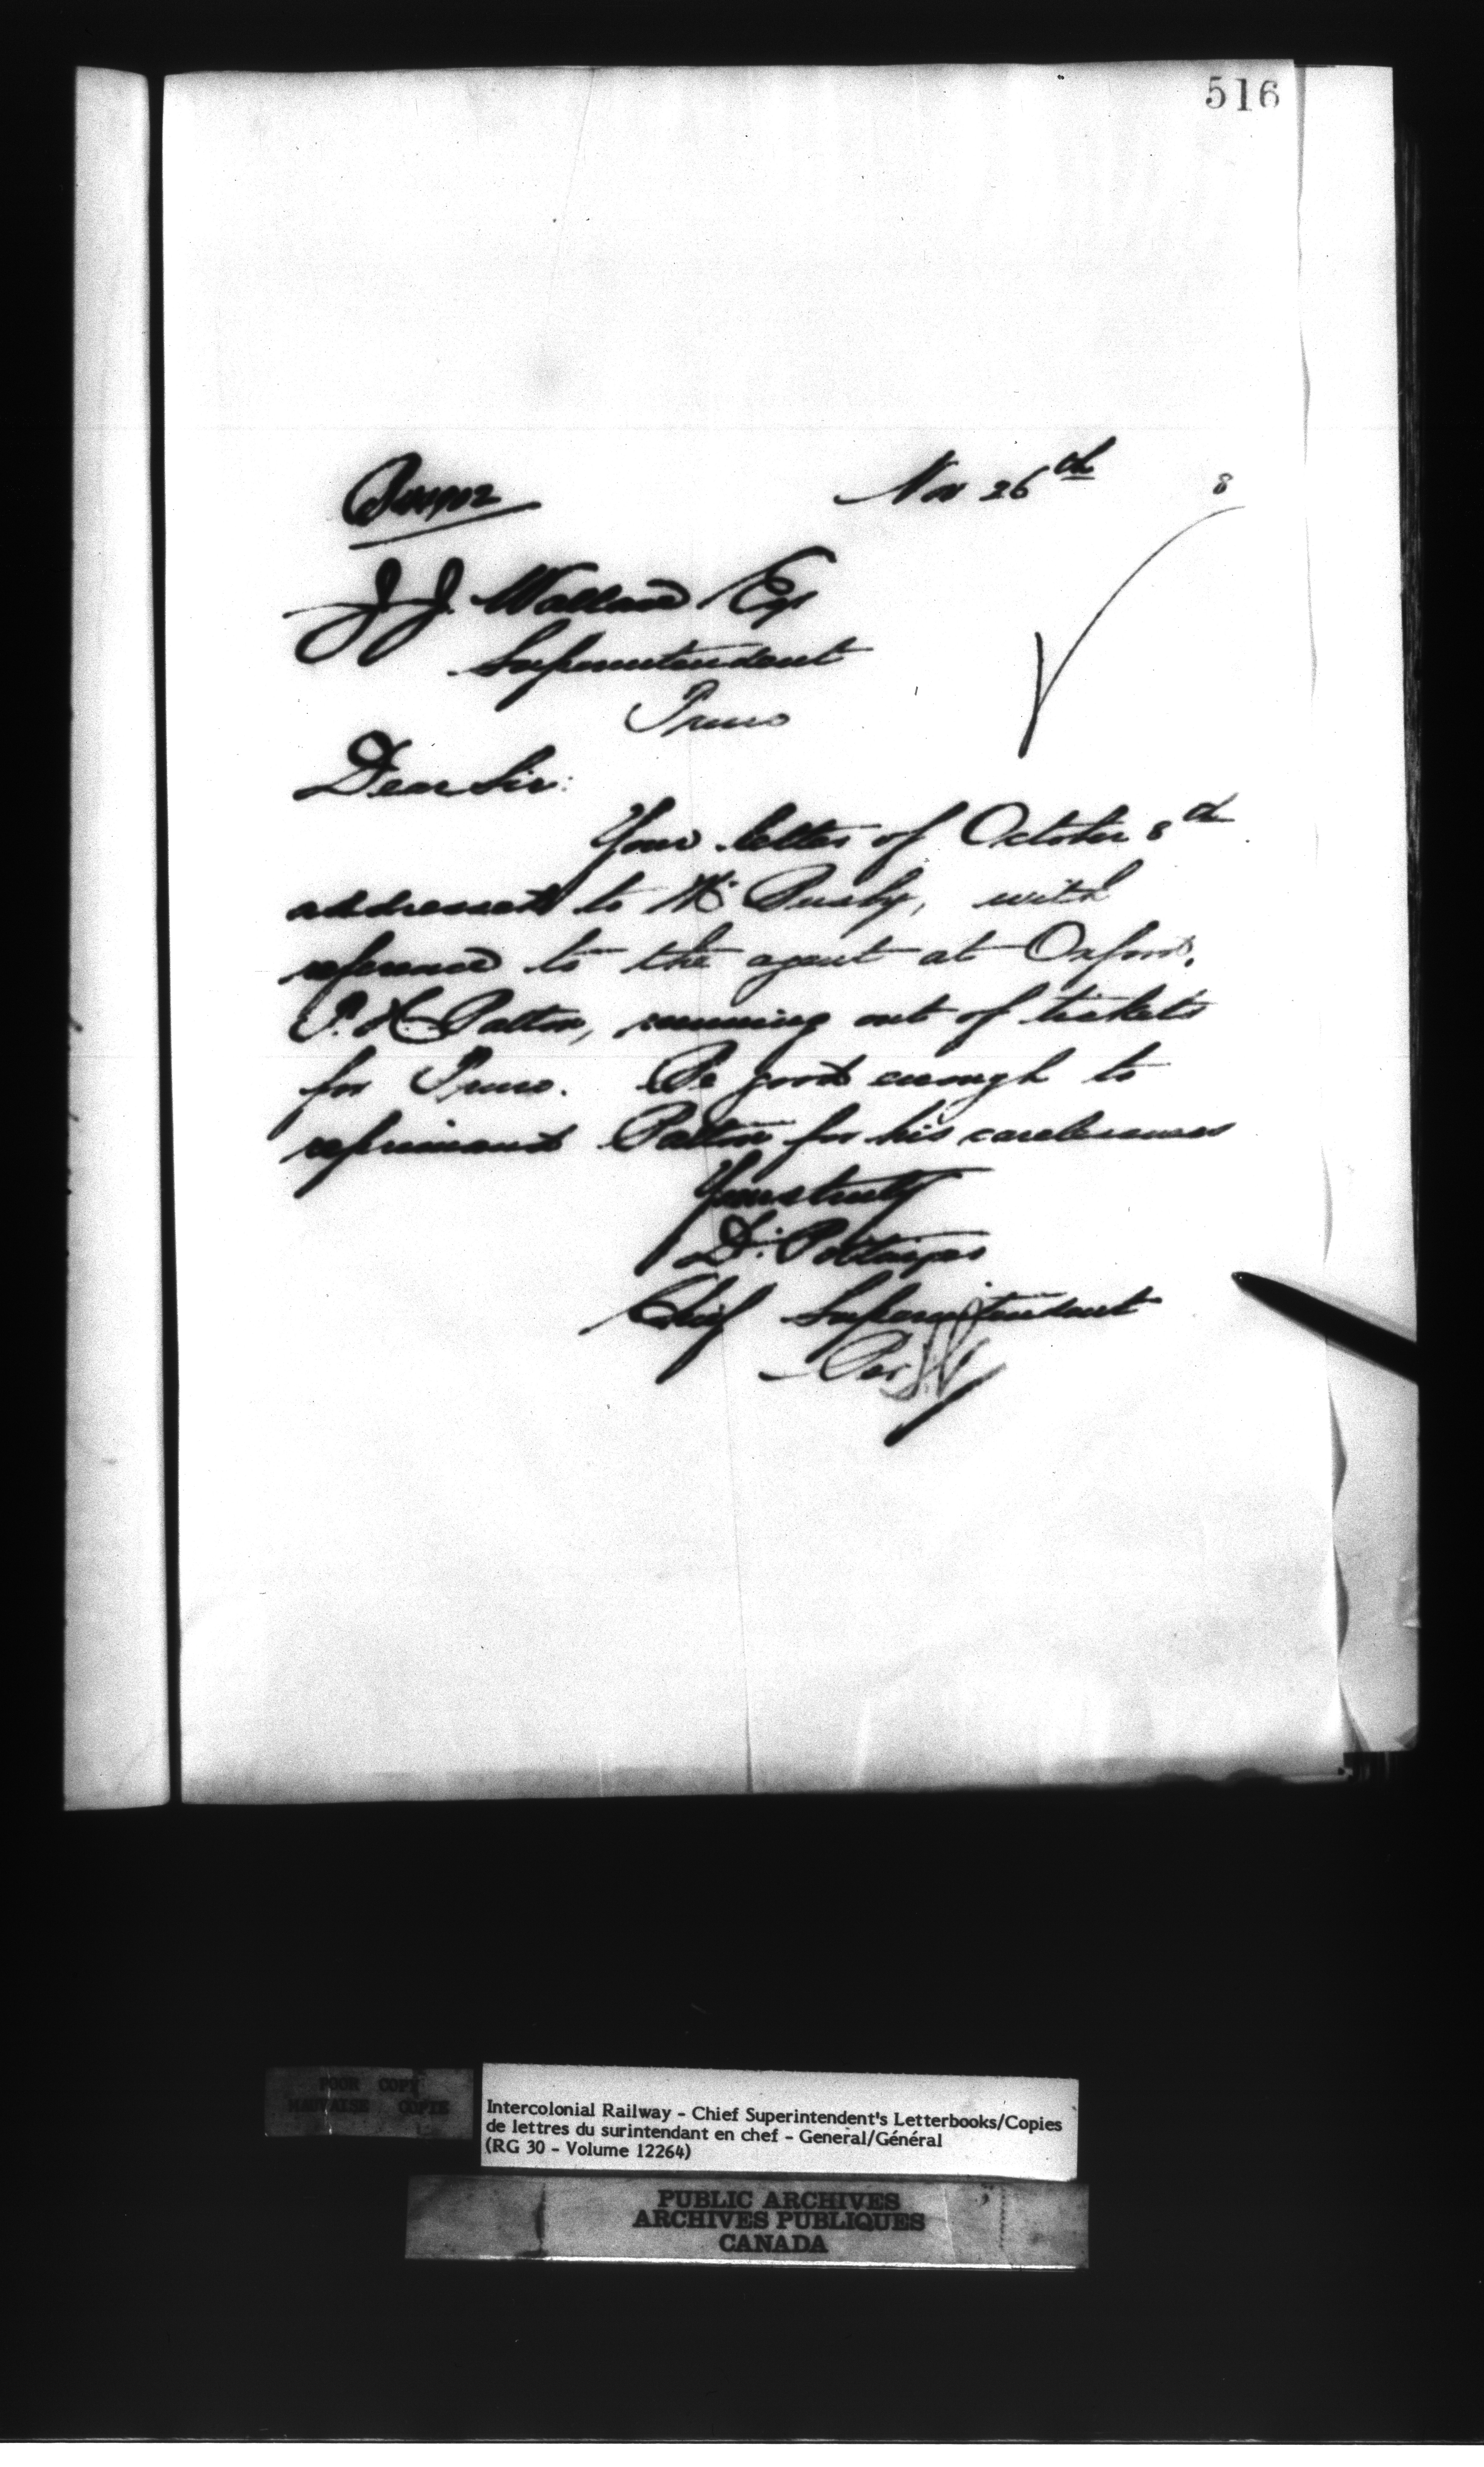 516
Nov 26th 8
J. J. Wallace Esq
Superintendent
Truro
Dear Sir:
Your letter of October 8th
addressed to Mr Busby, with
reference to the agent at Oxford,
P. H. Patton, running out of tickets
for Truro. Be good enough to
reprimand Patton for his carelessness
Yours truly
D. Pottinger
Chief Superintendent
Per
POOR COPY
MAUVAISE COPIE
Intercolonial Railway - Chief Superintendent's Letterbooks/Copies
de lettres du surintendant en chef - General/Général
(RG 30 - Volume 12264)
PUBLIC ARCHIVES
ARCHIVES PUBLIQUES
CANADA